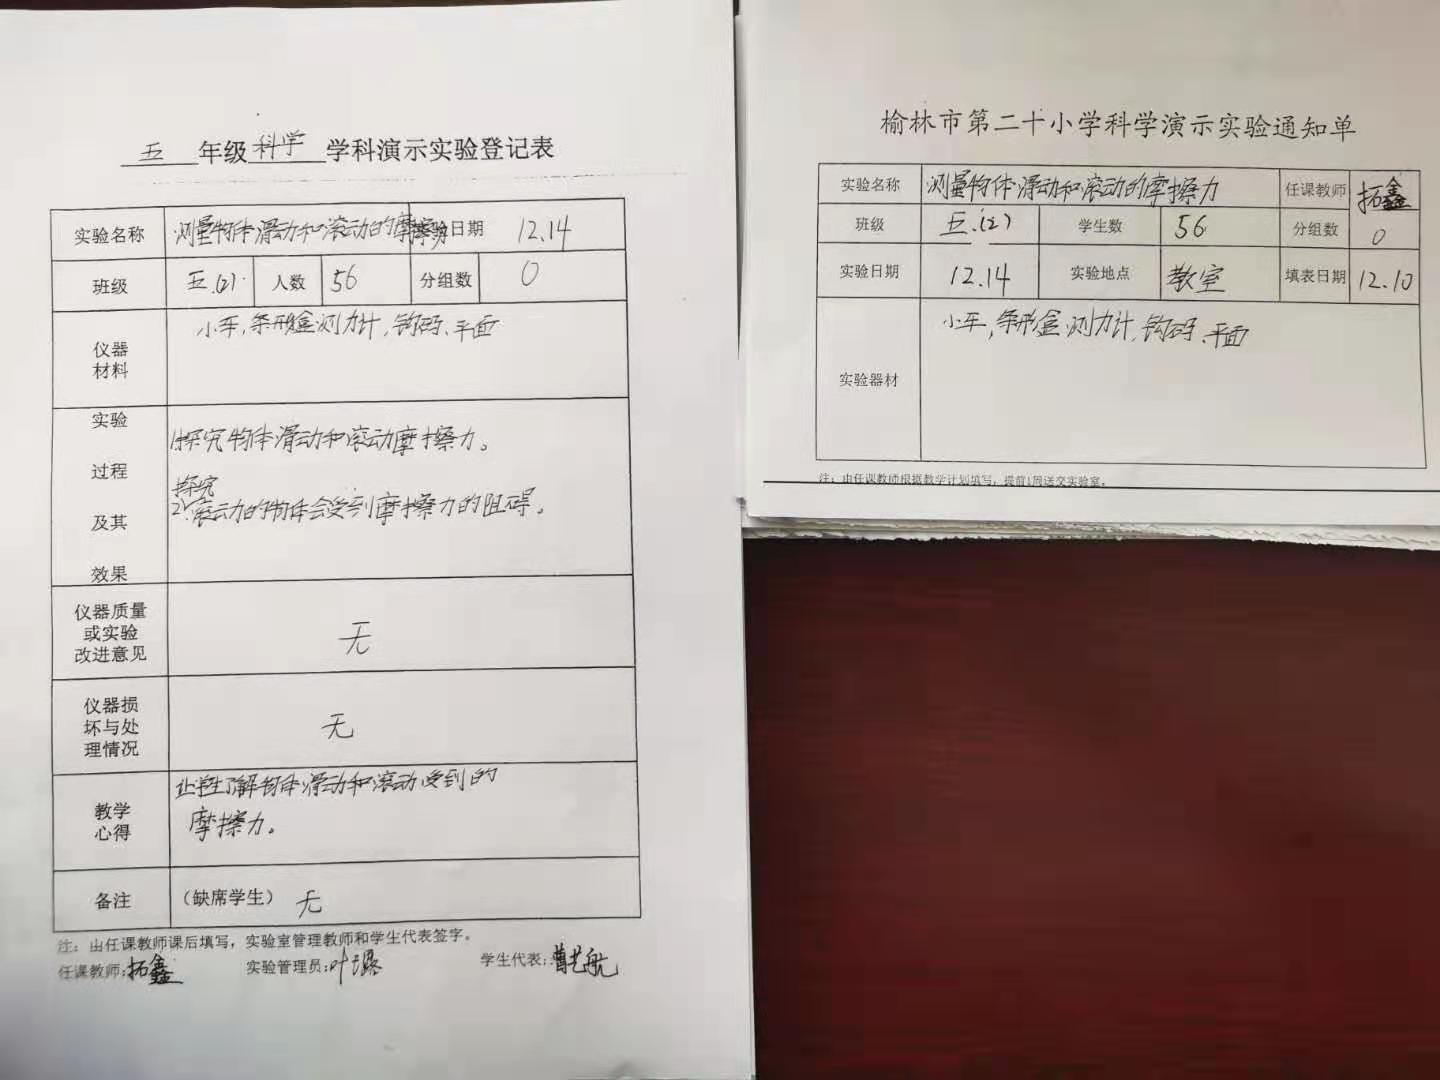 五年级科学学科演示实验登记表
实验名称 测量物体滑动和滚动的摩擦力 日期 12.14
班级 五.(2). 人数 56 分组数 0
仪器
材料
小车,条形盒测力计,钩码、平面
实验
过程
及其
效果
1.探究物体滑动和滚动摩擦力。
探究
2.滚动的物体会受到摩擦力的阻碍。
仪器质量
或实验
改进意见
无
仪器损
坏与处
理情况
无
教学
心得
让学生了解物体滑动和滚动受到的
摩擦力。
备注 (缺席学生) 无
注:由任课教师课后填写,实验室管理教师和学生代表签字。
任课教师:拓鑫 实验管理员:叶璐 学生代表:曹艺航
榆林市第二十小学科学演示实验通知单
实验名称 测量物体滑动和滚动的摩擦力 任课教师 拓鑫
班级 五.(2) 学生数 56 分组数 0
实验日期 12.14 实验地点 教室 填表日期 12.10
实验器材 小车,条形盒测力计,钩码、平面
注:由任课教师根据教学计划填写,提前1周送交实验室。